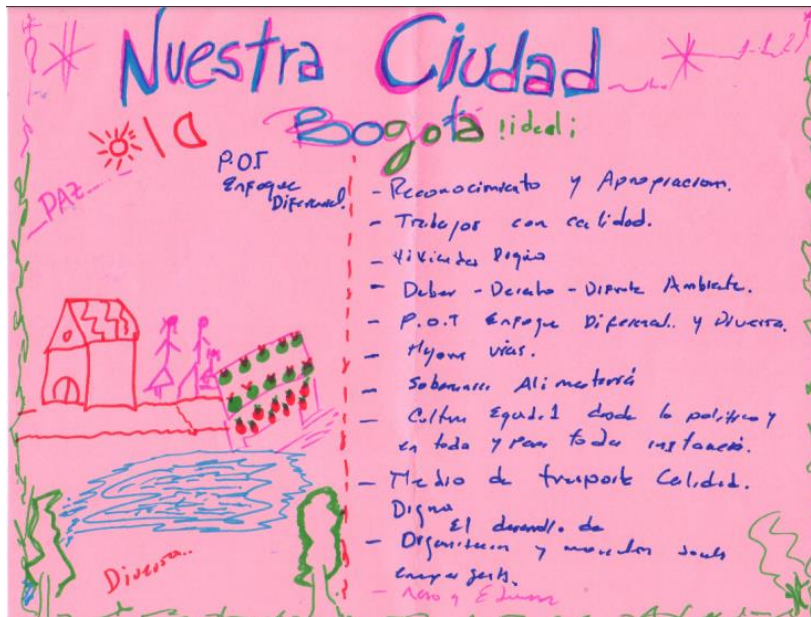 Nuestra Ciudad
Bogotá !ideal¡
P.O.T
Enfoque
Diferencial.
PAZ
- Reconocimiento y Apropiacion.
- Trabajos con calidad.
- Viviendas Digna
- Deber - Derecho - Ambiente.
- P.O.T Enfoque Diferencial.. y Diversa.
- vias.
- Soberania Alimentaria
- Cultura Equidad desde lo politico y
en toda y para toda instancia.
- Medio de trasporte Calidad.
Digna
El desarrollo de
- Organización y
Diversa..